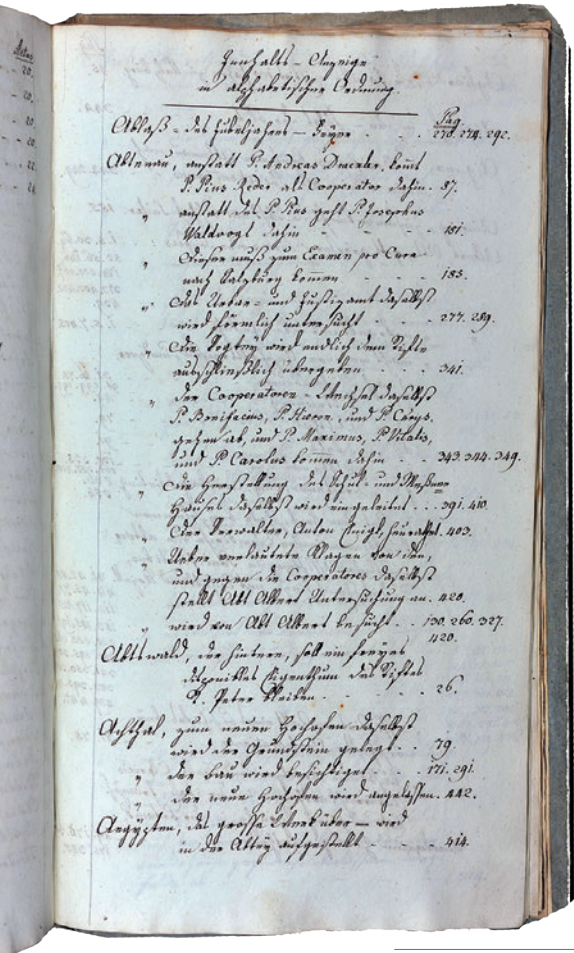 Datum
20.
20.
20.
20.
22.
24.
Innhalts – Anzeige
in alphabetischer Ordnung.
Pag
Ablaß – des Jubeljahres – Feyer . . . 270. 274. 292.
Abtenau, anstatt P. Andreas kömt
P. Pius Reder als Cooperator dahin . 87.
" anstatt des P. Pius geht P. Josephus
Waldvogl dahin - - - 181.
" Dieser muß zum Examen pro Cura
nach Salzburg kommen - - - 185.
" Das Urbar- und Justizamt daselbst
wird förmlich untersucht . . . 277. 289.
" Die Vogtey wird endlich dem Stifte
ausschließlich übergeben . . . 341.
" Der Cooperatoren – Wechsel daselbst
P. Bonifacius, P. Hieron. und P. Corbs.
gehen ab, und P. Marinus, P. Vitalis,
und P. Carolus kommen dahin . . 343. 344. 349.
" Die Herstellung des Schul- und Meßner
Hauses daselbst wird eingeleitet . . . 391. 410.
" Der Verwalter, Anton heurathet. 403.
" Ueber verlautete Klagen von den,
und gegen die Cooperatores daselbst
stellt Abt Albert Untersuchung an. 420.
" wird von Abt Albert besucht . . 130. 260. 327.
420.
Abtswald, der hintere, soll ein freyes
disponibles Eigenthum des Stiftes
St. Peter bleiben . . . 26.
Achthal, zum neuen Hochofen daselbst
wird der Grundstein gelegt . . 79.
" der Bau wird besichtiget . . 171. 291.
" der neue Hochofen wird angelassen. 442.
Aegypten, das grosse Werk über – wird
in der Abtey aufgestellt - - - 414.